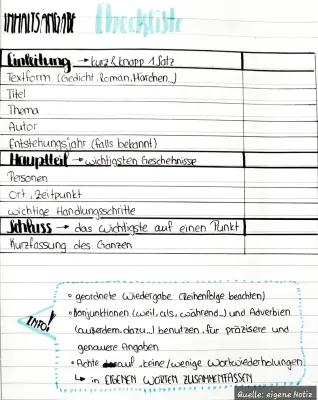 INHALTSANGABE Checkliste
Einleitung → kurz & knapp 1 Satz
Textform (Gedicht, Roman, Märchen..)
Titel
Thema
Autor
Entstehungsjahr (falls bekannt)
Hauptteil → wichtigsten Geschehnisse
Personen
Ort, Zeitpunkt
wichtige Handlungsschritte
Schluss → das wichtigste auf einen Punkt
Kurzfassung des Ganzen
INFO!
• geordnete Wiedergabe (Reihenfolge beachten)
• Konjunktionen (weil, als, während...) und Adverbien
(außerdem, dazu...) benutzen, für präzisere und
genauere Angaben
• Achte auf, keine/wenige Wortwiederholungen
↳ in EIGENEN WORTEN ZUSAMMENFASSEN
Quelle: eigene Notiz